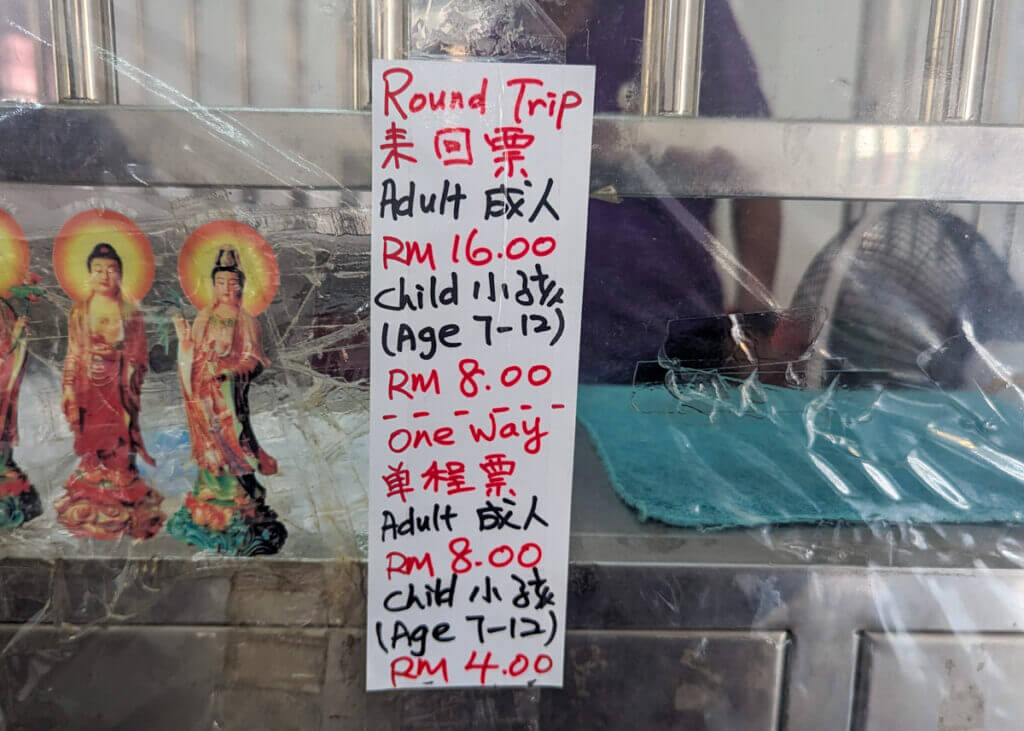 Round Trip
来回票
Adult 成人
RM 16.00
Child 小孩
(Age 7-12)
RM 8.00
One Way
单程票
Adult 成人
RM 8.00
Child 小孩
(Age 7-12)
RM 4.00